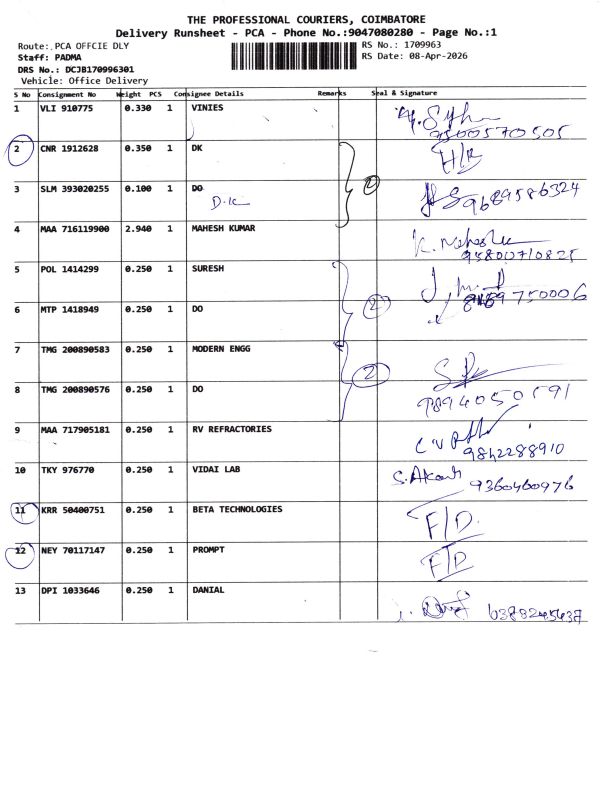 THE PROFESSIONAL COURIERS, COIMBATORE
Delivery Runsheet - PCA - Phone No.:9047080280 - Page No.:1
Route: PCA OFFCIE DLY
RS No.: 1709963
Staff: PADMA
RS Date: 08-Apr-2026
DRS No.: DCJB170996301
Vehicle: Office Delivery
S No Consignment No Weight PCS Consignee Details Remarks Seal & Signature
1 VLI 910775 0.330 1 VINIES
9500570505
2 CNR 1912628 0.350 1 DK H/R
3 SLM 393020255 0.100 1 DO 9689586324
D.K
4 MAA 716119900 2.940 1 MAHESH KUMAR
95800710825
5 POL 1414299 0.250 1 SURESH
6 MTP 1418949 0.250 1 DO 2
7 TMG 200890583 0.250 1 MODERN ENGG
2
8 TMG 200890576 0.250 1 DO
9 MAA 717905181 0.250 1 RV REFRACTORIES
9842288910
10 TKY 976770 0.250 1 VIDAI LAB 9360460976
11 KRR 50400751 0.250 1 BETA TECHNOLOGIES F/D.
12 NEY 70117147 0.250 1 PROMPT F/D
13 DPI 1033646 0.250 1 DANIAL